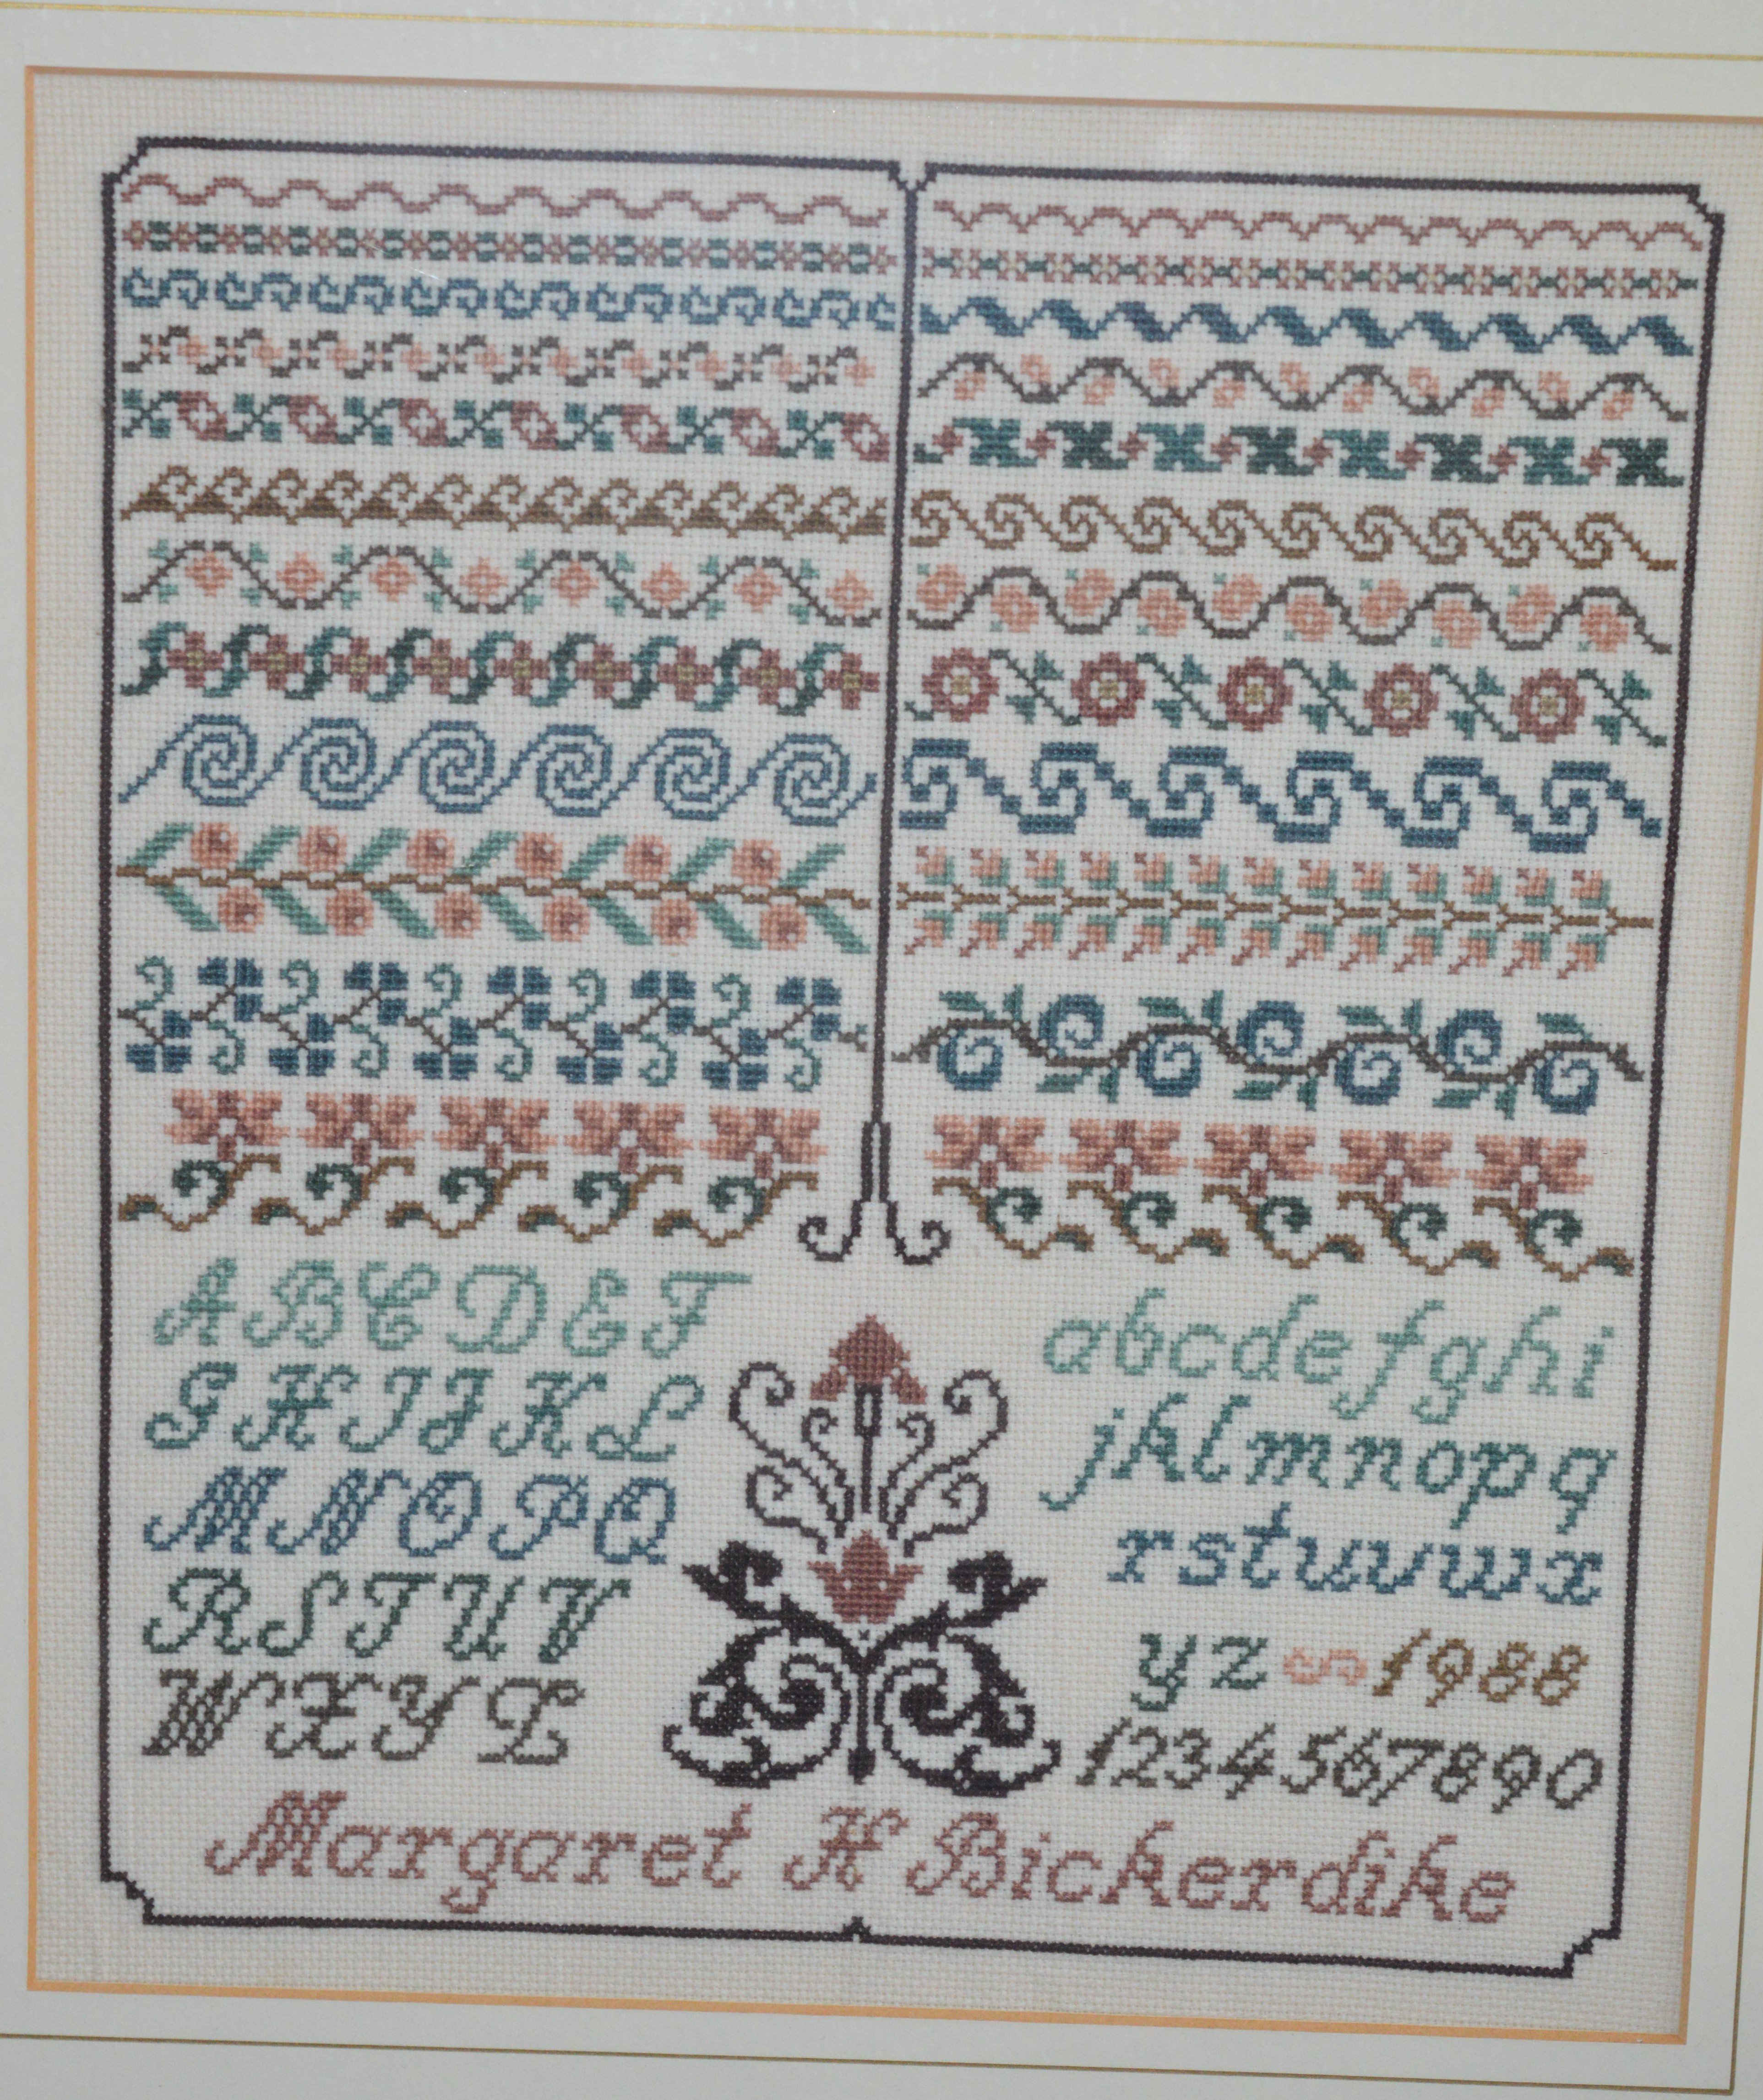 A B C D E F
G H I J K L
M N O P Q
R S T U V
W X Y Z
a b c d e f g h i
j k l m n o p q
r s t u v w x
y z ~ 1988
1 2 3 4 5 6 7 8 9 0
Margaret H Bickerdike